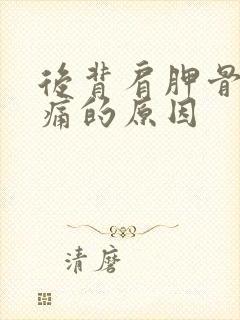 後背肩胛骨
痛的原因
清磨